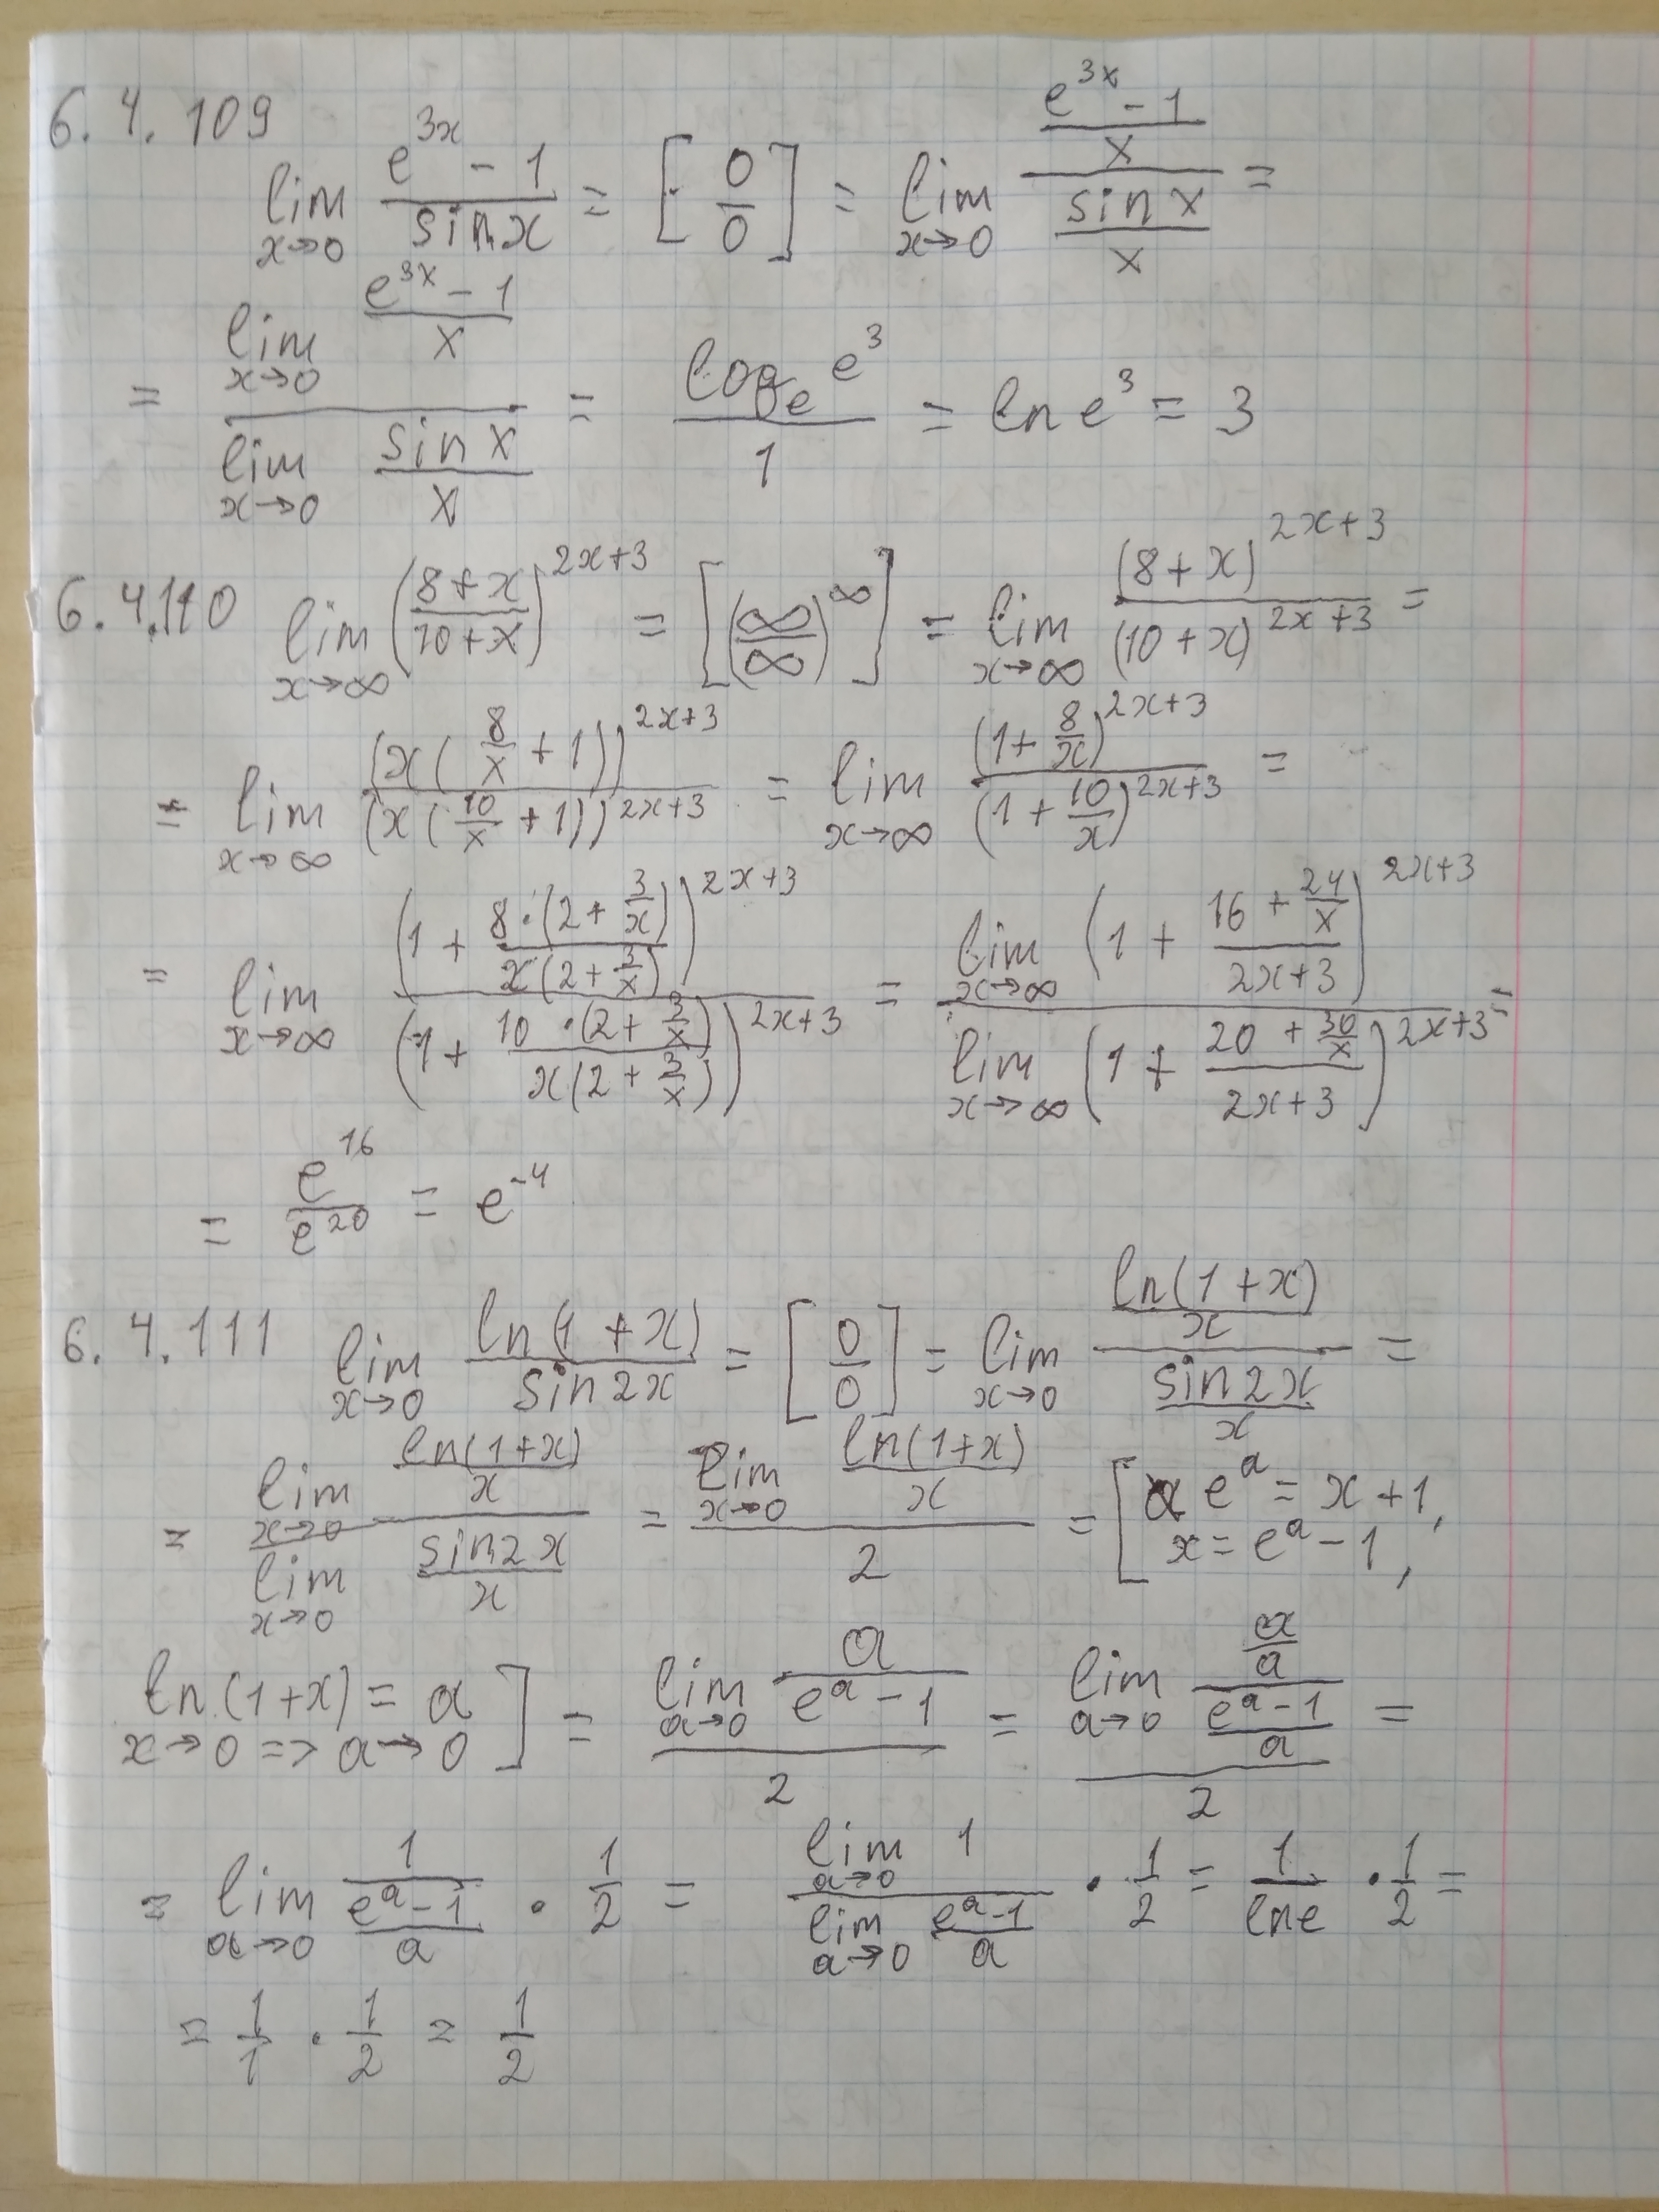 6.4.109
lim_{x→0} (e^{3x} - 1)/(sin x) = [0/0] = lim_{x→0} ((e^{3x} - 1)/x)/((sin x)/x) =
= (lim_{x→0} (e^{3x} - 1)/x)/(lim_{x→0} (sin x)/x) = (log_e e^3)/1 = ln e^3 = 3
6.4.110 lim_{x→∞} ((8 + x)/(10 + x))^{2x+3} = [(∞/∞)^∞] = lim_{x→∞} (8 + x)^{2x+3}/(10 + x)^{2x+3} =
= lim_{x→∞} (x(8/x + 1))^{2x+3}/(x(10/x + 1))^{2x+3} = lim_{x→∞} (1 + 8/x)^{2x+3}/(1 + 10/x)^{2x+3} =
= lim_{x→∞} (1 + (8·(2 + 3/x))/(x(2 + 3/x)))^{2x+3}/(1 + (10·(2 + 3/x))/(x(2 + 3/x)))^{2x+3} = (lim_{x→∞} (1 + (16 + 24/x)/(2x+3))^{2x+3})/(lim_{x→∞} (1 + (20 + 30/x)/(2x+3))^{2x+3}) =
= e^{16}/e^{20} = e^{-4}
6.4.111 lim_{x→0} (ln(1 + x))/(sin 2x) = [0/0] = lim_{x→0} ((ln(1 + x))/x)/((sin 2x)/x) =
= (lim_{x→0} (ln(1+x))/x)/(lim_{x→0} (sin 2x)/x) = (lim_{x→0} (ln(1+x))/x)/2 = [e^a = x + 1,
x = e^a - 1,
ln(1+x) = a
x→0 => a→0] = (lim_{a→0} a/(e^a - 1))/2 = (lim_{a→0} (a/a)/((e^a - 1)/a))/2 =
= lim_{a→0} 1/((e^a - 1)/a) · 1/2 = (lim_{a→0} 1)/(lim_{a→0} (e^a - 1)/a) · 1/2 = 1/(ln e) · 1/2 =
= 1/1 · 1/2 = 1/2